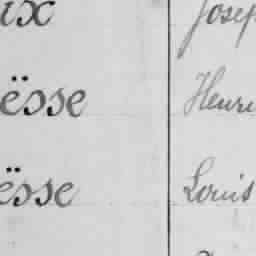 ix Josep
ësse Henri
ësse Louis